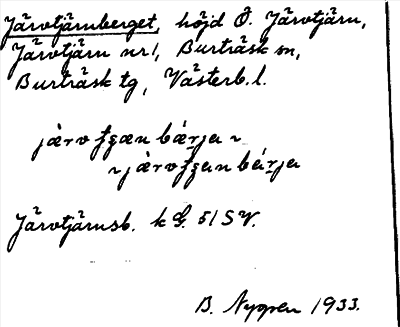 Järvtjärnberget, höjd Ö. Järvtjärn,
Järvtjärn nr 1, Burträsk sn,
Burträsk tg, Västerb. l.
Järvtjärnsb. k G. 51 SV.
B. Nygren 1933.